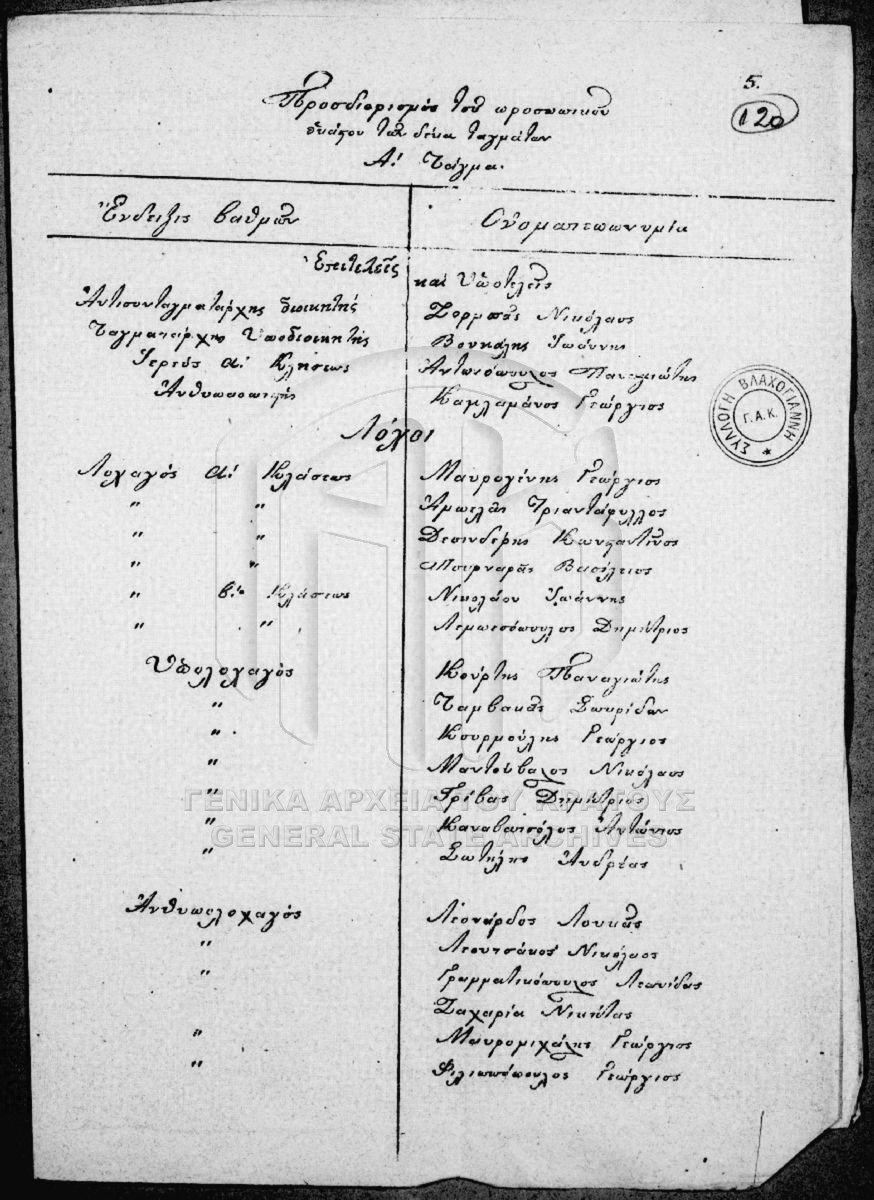 5.
120
Προσδιορισμός τοῦ προσωπικοῦ
ἑκάστου τῶν δέκα ταγμάτων
Α! Τάγμα.
Ἔνδειξις βαθμῶν Ὀνοματεπωνυμία
Ἐπιτελεῖς καὶ Ὑποτελεῖς
Ἀντισυνταγματάρχης διοικητής Ζορμπᾶς Νικόλαος
Ταγματάρχης Ὑποδιοικητής Βουκάλης Ἰωάννης
Ἱερεύς Α! Κλήσεως Ἀντωνόπουλος Παναγιώτης
Ἀνθυπασπιστής Καμλαμάνος Γεώργιος
Λόχοι
Λοχαγός Α! Κλάσεως Μαυρογένης Γεώργιος
" " Ἀμπελᾶς Τριαντάφυλλος
" " Δεσινδερης Κωνσταντῖνος
" " Μπουρναρᾶς Βασίλειος
" β! Κλάσεως Νικολάου Ἰωάννης
" " Λεμπεσόπουλος Δημήτριος
Ὑπολοχαγός Κούρτης Παναγιώτης
" Ταμβακᾶς Σπυρίδων
" Κουρμούλης Γεώργιος
" Μαντούβαλος Νικόλαος
" Γρίβας Δημήτριος
" Καναβατσόλος Ἀντώνιος
" Σωτήλης Ἀνδρέας
Ἀνθυπολοχαγός Λεονάρδος Λουκᾶς
" Λεουτσάκος Νικόλαος
" Γραμματικόπουλος Λεωνίδας
Ζαχαρία Νικήτας
" Μαυρομιχάλης Γεώργιος
" Φιλιππόπουλος Γεώργιος
ΣΥΛΛΟΓΗ ΒΛΑΧΟΓΙΑΝΝΗ
Γ.Α.Κ.
ΓΕΝΙΚΑ ΑΡΧΕΙΑ ΤΟΥ ΚΡΑΤΟΥΣ
GENERAL STATE ARCHIVES